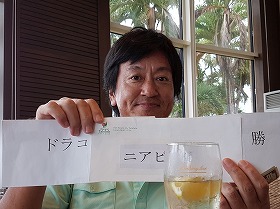 ドラコ
ニアピ
勝